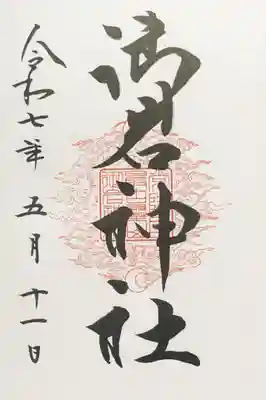 御岩神社
令和七年 五月 十一日